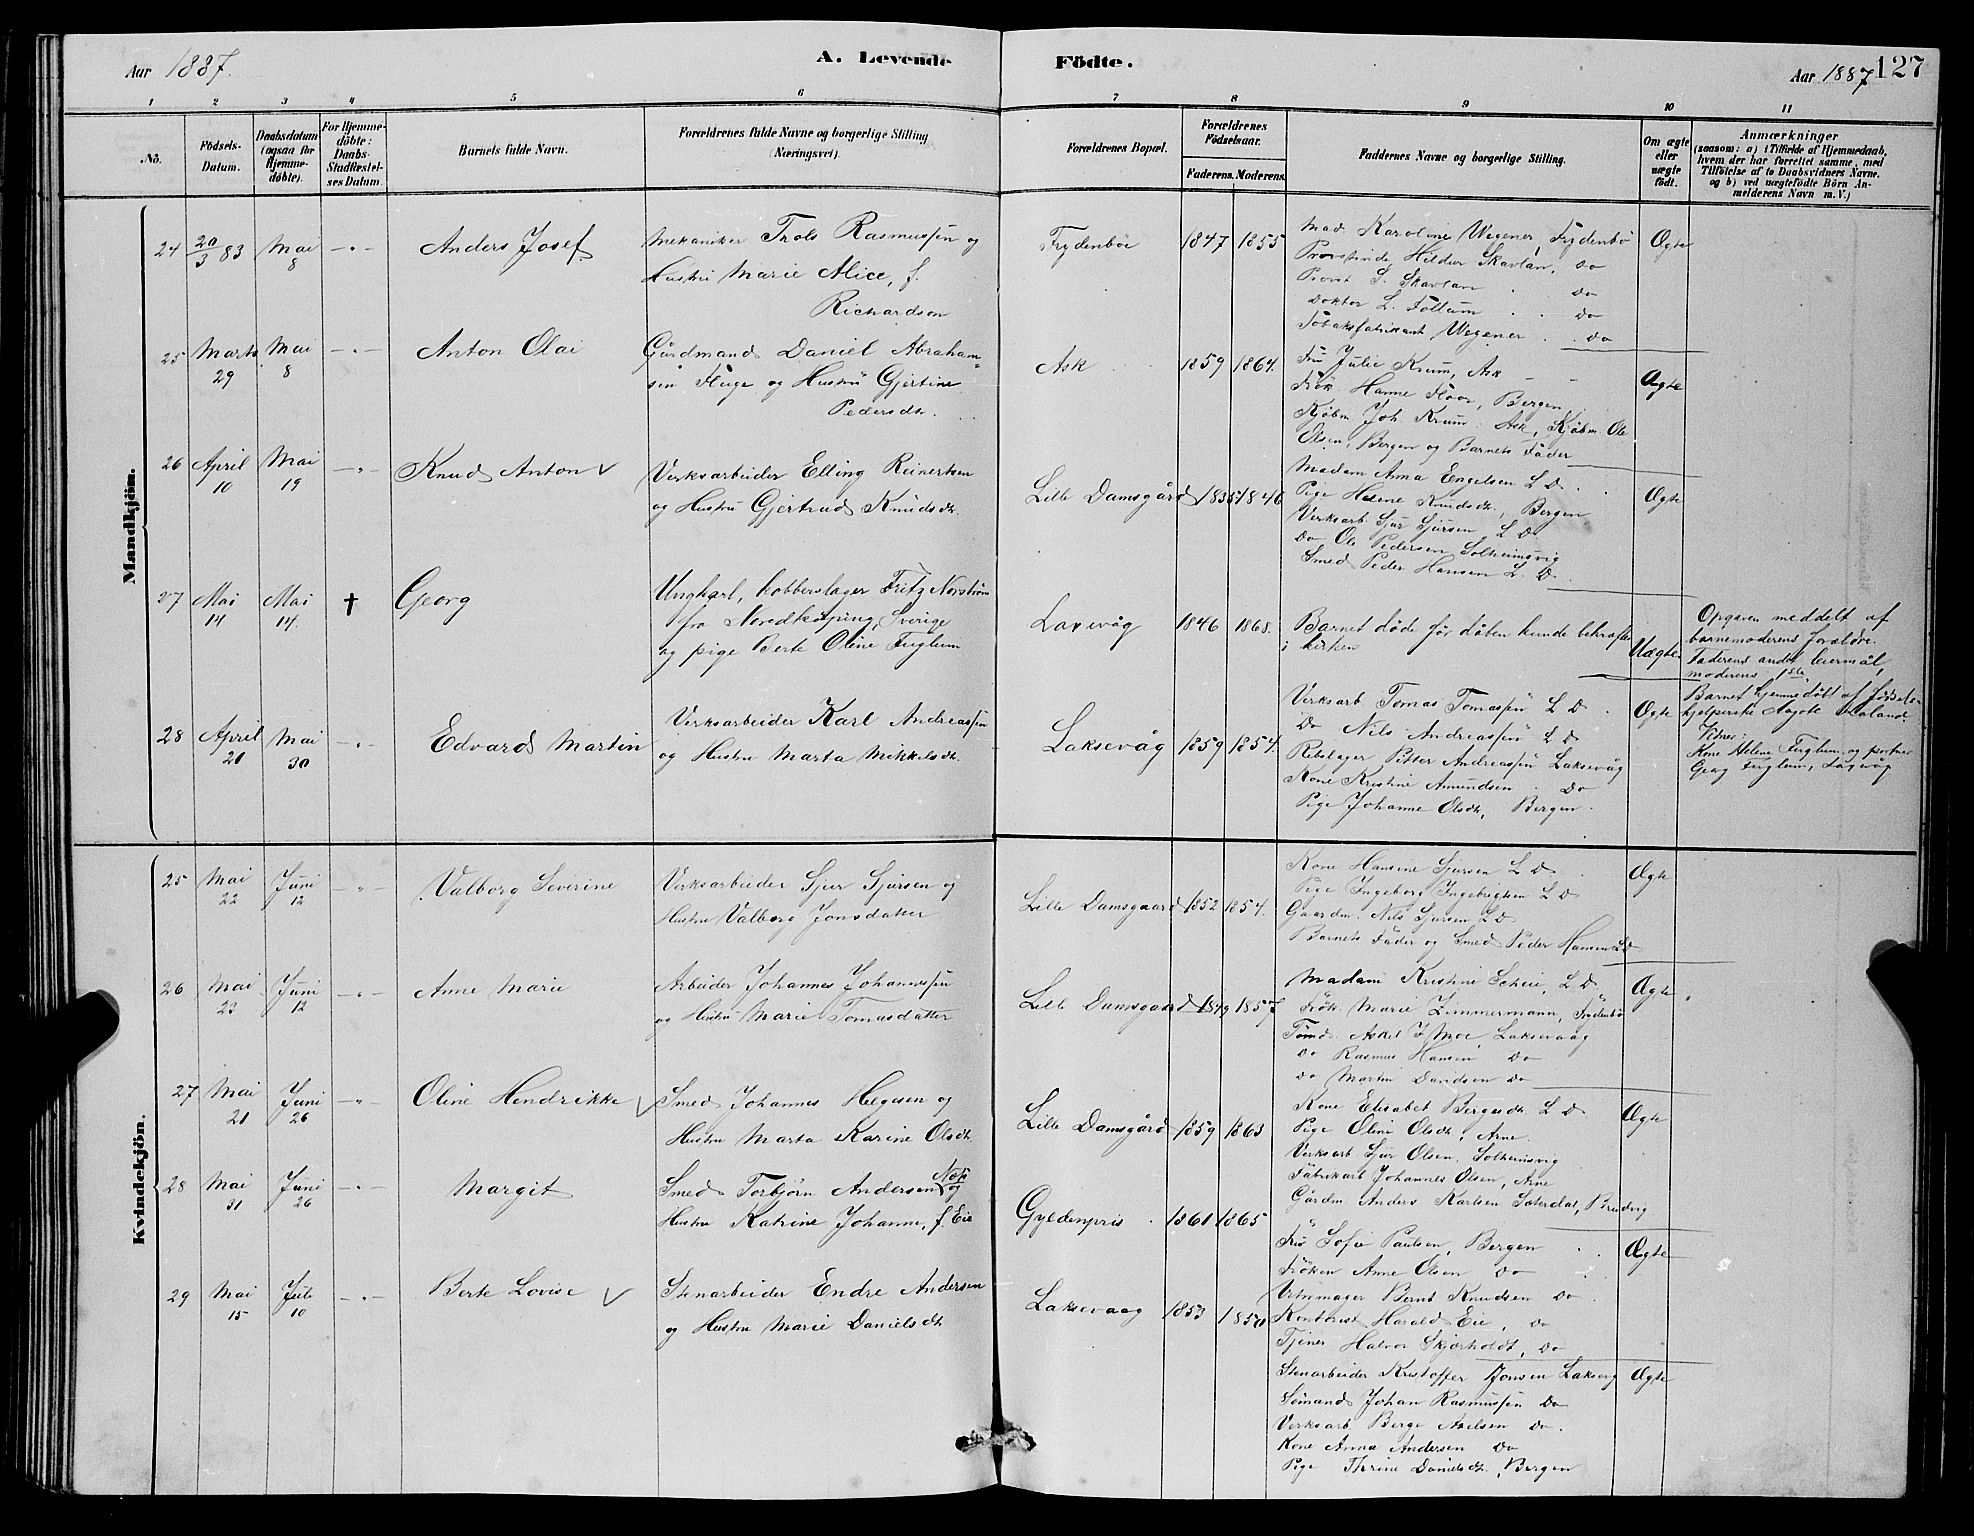 Aar 1887.
A. Levende Födte.
Aar 1887
127
1 2 3 4 5 6 7 8 9 10 11
No.
Födsels-Datum.
Daabsdatum (ogsaa for Hjemme-döbte).
For Hjemme-döbte: Daabs-Stadfæstel-ses Datum.
Barnets fulde Navn.
Forældrenes fulde Navne og borgerlige Stilling (Næringsvei).
Forældrenes Bopæl.
Forældrenes Födselsaar.
Faderens. Moderens.
Faddernes Navne og borgerlige Stilling.
Om ægte eller uægte födt.
Anmærkninger
(saasom: a) i Tilfælde af Hjemmedaab,
hvem der har forrettet samme, med
Tilföielse af to Daabsvidners Navne.
og b) ved uægtefödte Börn An-
melderens Navn m. V.)
Mandkjön.
24 20/3 83 Mai 8 Anders Josef
Mekaniker Trols Rasmussen og
Hustru Marie Alice, f.
Richardson
Frydenböe 1847 1855
Mad. Karoline Wegener, Frydenbö
Provstinde Hildur Skavlan, Do
Provst S. Skavlan Do
Doktor L. Follum Do
Tobaksfabrikant Wegener Do
Ægte
25 Marts 29 Mai 8 Anton Olai
Gårdmand Daniel Abraham-
sen Fluge og Hustru Gjertine
Pedersdtr.
Ask 1859 1864.
Fru Julie Krum, Ask
Frök. Hanne Floor, Bergen
Kjöbm. Joh. Krum Ask, Kjöbm. Ole
Olsen, Bergen og Barnets Fader
Ægte
26 April 10 Mai 19 Knud Anton
Verksarbeider Elling Reinertsen
og Hustru Gjertrud Knudsdtr.
Lille Damsgård 1835 1846
Madam Anna Engelsen L D.
Pige Helene Knudsdtr., Bergen
Verksarb. Sjur Sjursen L D
Do Ole Pedersen Solheimsvig
Smed Peder Hansen L. D.
Ægte
27 Mai 14 Mai 14. † Georg
Ungkarl, kobberslager Fritz Norström
fra Nordköping, Sverige
og pige Berte Oline Fuglum
Laxevåg 1846 1868.
Barnet döde för dåben kunde bekræftes
i kirken
Uægte
Opgaven meddelt af
barnemoderens forældre.
Faderens andet leiermål,
moderens 1ste
Barnet hjemmedöbt af födsels-
hjelperske Aagote Haaland
Vidner:
Kone Helene Fuglum og portner
Georg Fuglum, Laxevåg
28 April 21 Mai 30 Edvard Martin
Verksarbeider Karl Andreassen
og Hustru Marta Mikkelsdtr.
Laksevåg 1859 1854.
Verksarb Tomas Tomassen L D.
Do Nils Andreassen L D
Rebslager Pitter Andreassen Laksevåg
Kone Kristine Amundsen Do
Pige Johanne Olsdtr, Bergen.
Ægte
Kvindekjön.
25 Mai 22 Juni 12 Valborg Severine
Verksarbeider Sjur Sjursen og
Hustru Valborg Jonsdatter
Lille Damsgaard 1852 1854.
Kone Hansine Sjursen L D
Pige Ingeborg Ingebrigtsen L D
Gaardm. Nils Sjursen L D
Barnets Fader og Smed Peder Hansen L D
Ægte
26 Mai 23 Juni 12 Anne Marie
Arbeider Johannes Johannessen
og Hustru Marie Tomasdatter
Lille Damsgaard 1849 1857
Madam Kristine Scheie, L D
Frök. Marie Zimmermann, Frydenbö
Tömd. Askel J Moe Laksevaag
Do Rasmus Hansen Do
Do Martin Davidsen Do
Ægte
27 Mai 21 Juni 26 Oline Hendrikke
Smed Johannes Helgesen og
Hustru Marta Karine Olsdtr.
Lille Damsgård 1859 1863
Kone Elisabet Bergesdtr. L D
Pige Oline Olsdtr, Arne
Verksarb Sjur Olsen, Solheimsvig
Fabrikarb Johannes Olsen, Arne
Gårdm Anders Karlsen Sæterdal, Brudvig
Ægte
28 Mai 31 Juni 26 Margit
Smed Torbjörn Andersen Næss og
Hustru Katrine Johanne, f. Eie
Gyldenpris 1861 1865
Fru Sofie Paulsen, Bergen
Fröken Anne Olsen Do
Urtmager Bernt Knudsen Do
Kontorist Harald Eie, Do
Tjener Halvor Skjærholdt, Do
Ægte
29 Mai 15 Juli 10 Berte Lovise
Stenarbeider Endre Andersen
og Hustru Marie Danielsdtr.
Laksevaag 1853 1850
Stenarbeider Kristoffer Jonsen Laksevg
Sömand Johan Rasmussen Do
Verksarb Berge Axelsen Do.
Kone Anna Andersen Do
Pige Thrine Danielsdtr., Bergen
Ægte